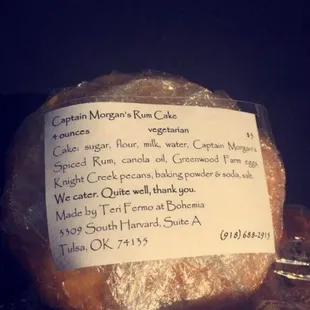 Captain Morgan's Rum Cake
4 ounces vegetarian $5
Cake: sugar, flour, milk, water, Captain Morgan's
Spiced Rum, canola oil, Greenwood Farm eggs,
Knight Creek pecans, baking powder & soda, salt.
We cater. Quite well, thank you.
Made by Teri Fermo at Bohemia
3309 South Harvard, Suite A
Tulsa, OK 74135 (918) 688-2915